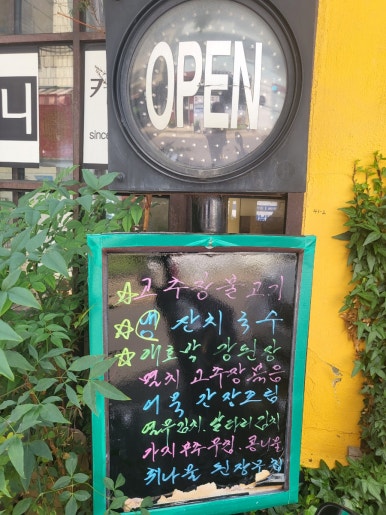 OPEN
니
since
고추장불고기
잔치국수
애호박 강된장
멸치 고추장볶음
어묵 간장조림
열무김치. 알타리김치
가지부추무침. 콩나물
취나물 된장무침